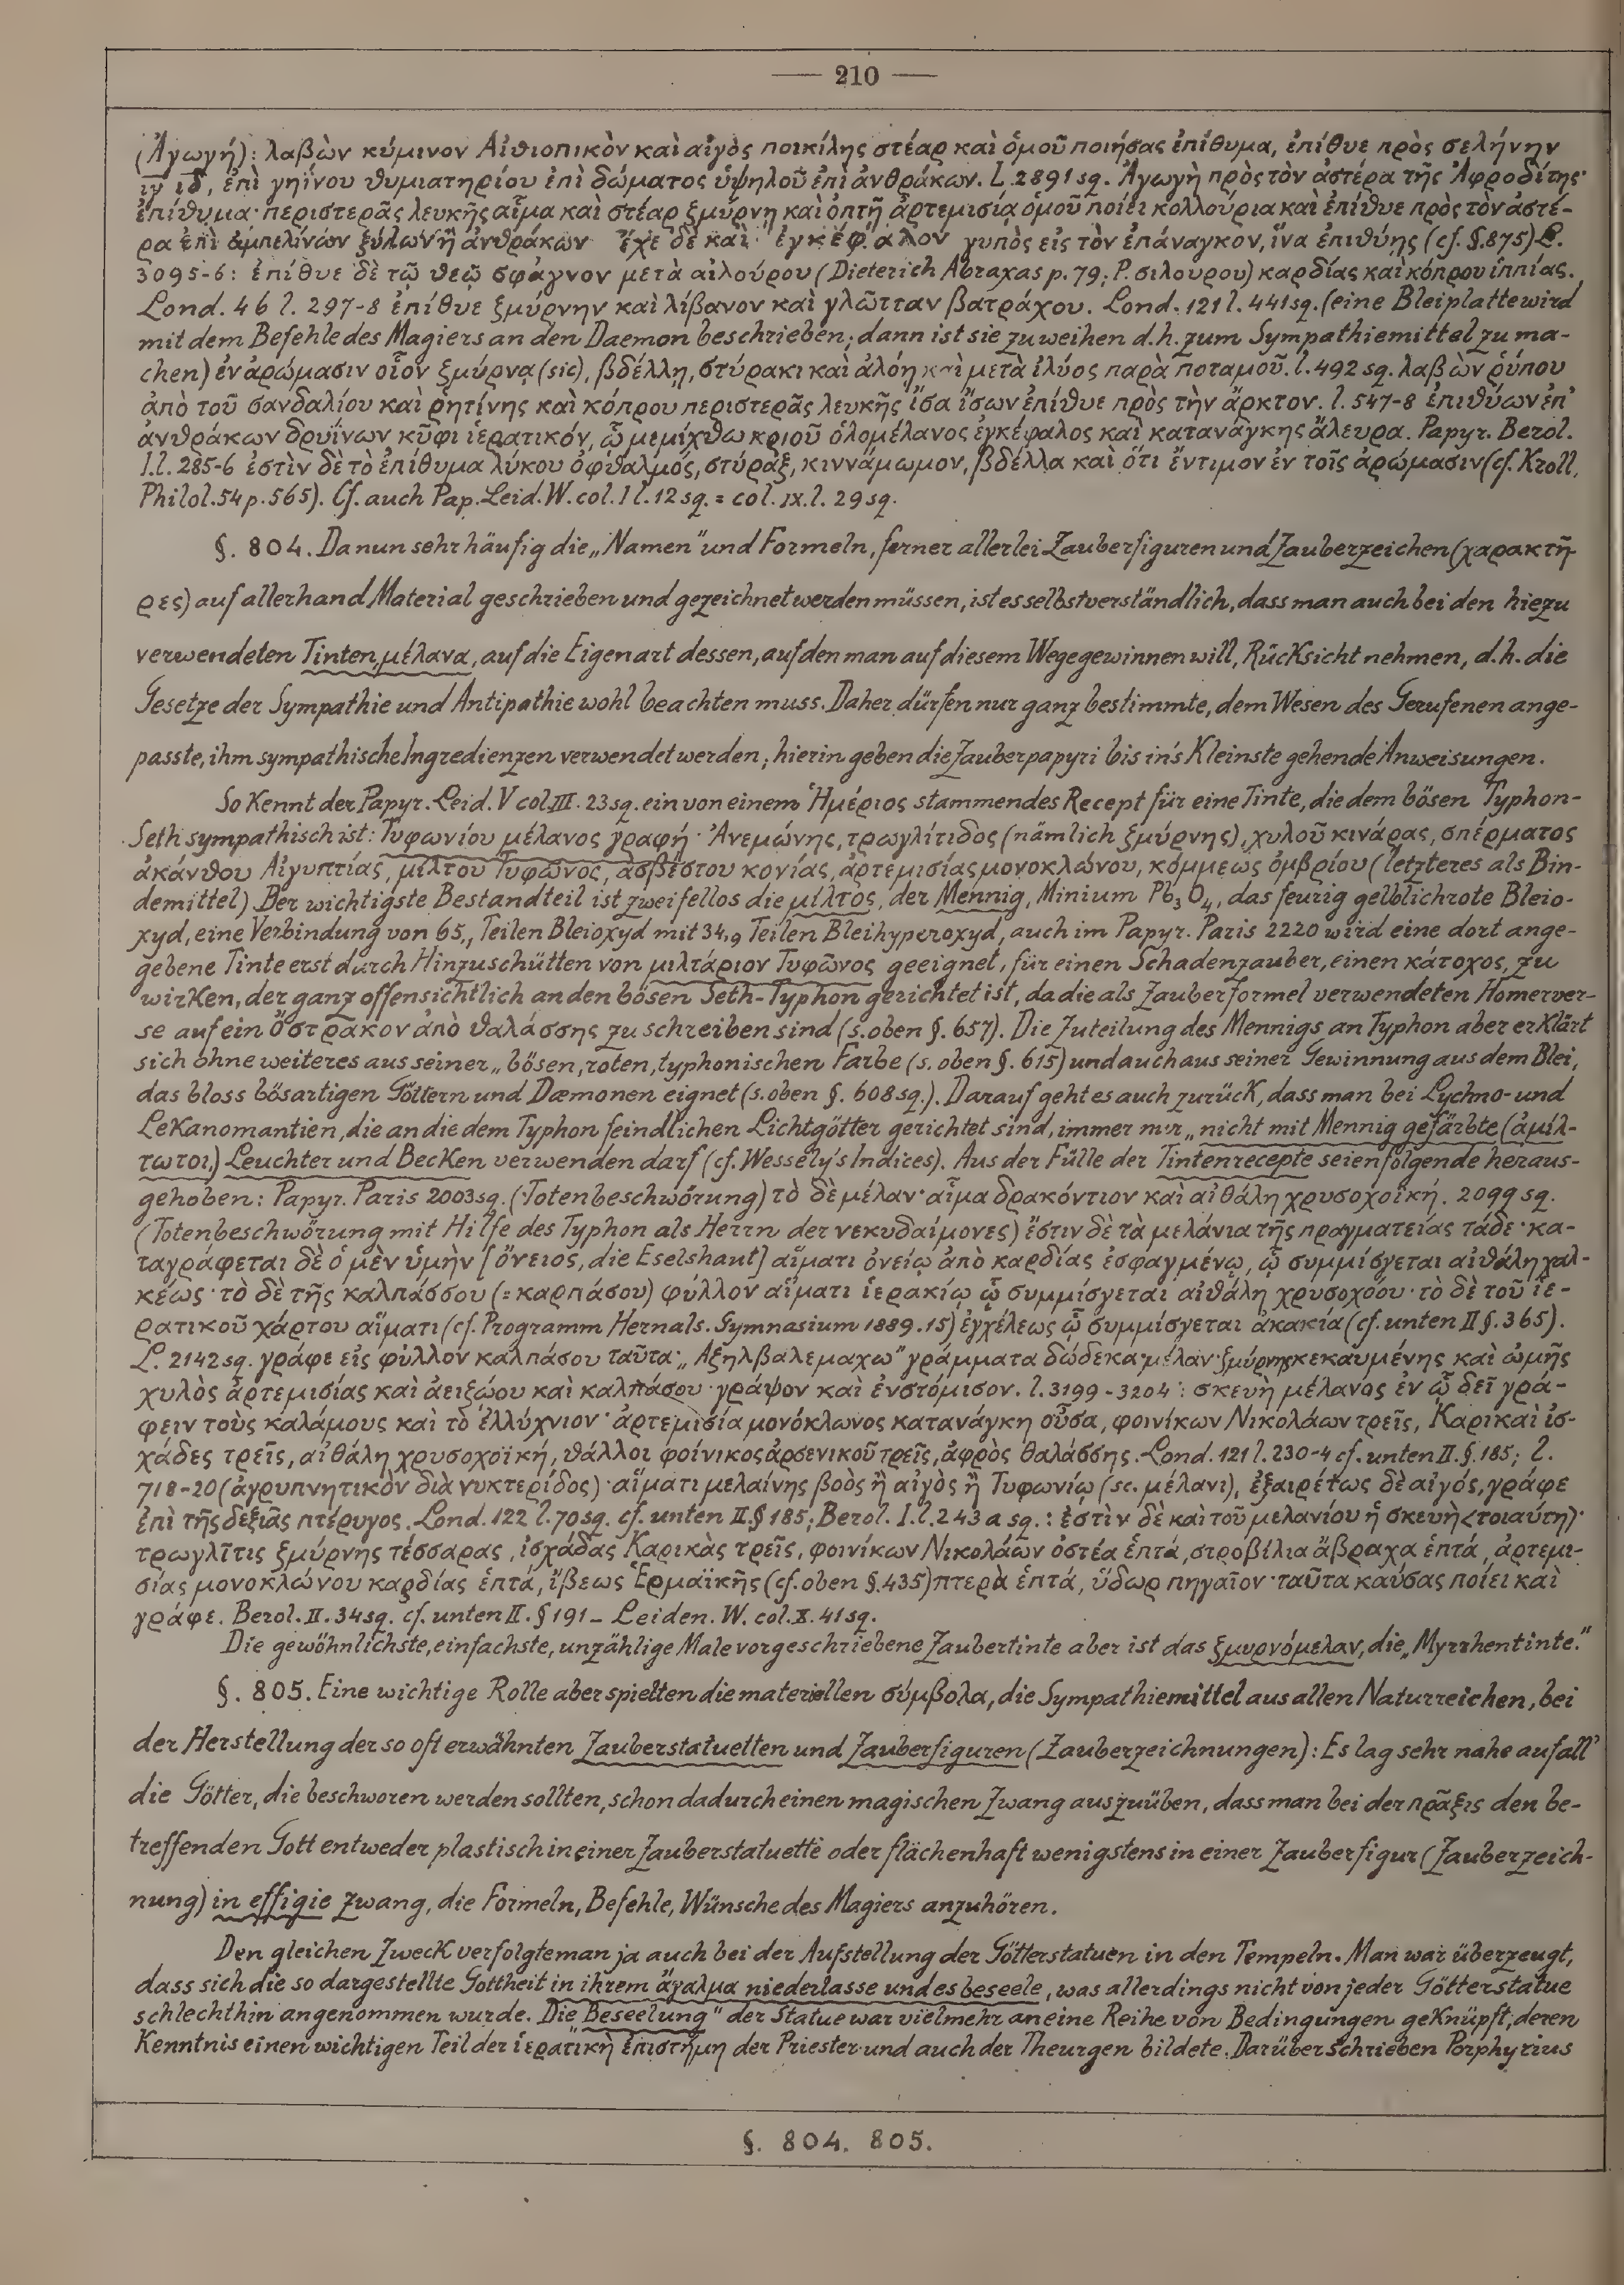 — 210 —
(Ἀγωγή): λαβὼν κύμινον Αἰθιοπικὸν καὶ αἰγὸς ποικίλης στέαρ καὶ ὁμοῦ ποιήσας ἐπίθυμα, ἐπίθυε πρὸς σελήνην
ιγ ιδ, ἐπὶ γηΐνου θυμιατηρίου ἐπὶ δώματος ὑψηλοῦ ἐπὶ ἀνθράκων. L. 2891 sq. Ἀγωγὴ πρὸς τὸν ἀστέρα τῆς Ἀφροδίτης·
ἐπίθυμα· περιστερᾶς λευκῆς αἷμα καὶ στέαρ ξμύρνη καὶ ὀπτῆ ἀρτεμισία ὁμοῦ ποίει κολλούρια καὶ ἐπίθυε πρὸς τὸν ἀστέ-
ρα ἐπὶ ἀμπελίνων ξύλων ἢ ἀνθράκων ἔχε δὲ καὶ ἐγκέφαλον γυπὸς εἰς τὸν ἐπάναγκον, ἵνα ἐπιθύῃς (cf. §. 875) L.
3095-6: ἐπίθυε δὲ τῷ θεῷ σφάγνον μετὰ αἰλούρου (Dieterich Abraxas p. 79; P. σιλουρου) καρδίας καὶ κόπρου ἱππίας.
Lond. 46 l. 297-8 ἐπίθυε ξμύρνην καὶ λίβανον καὶ γλῶτταν βατράχου. Lond. 121 l. 441 sq. (eine Bleiplatte wird
mit dem Befehle des Magiers an den Daemon beschrieben; dann ist sie zu weihen d.h. zum Sympathiemittel zu ma-
chen) ἐν ἀρώμασιν οἷον ξμύρνᾳ (sic), βδέλλῃ, στύρακι καὶ ἀλόῃ καὶ μετὰ ἰλύος παρὰ ποταμοῦ. l. 492 sq. λαβὼν ῥύπου
ἀπὸ τοῦ σανδαλίου καὶ ῥητίνης καὶ κόπρου περιστερᾶς λευκῆς ἴσα ἴσων ἐπίθυε πρὸς τὴν ἄρκτον. l. 547-8 ἐπιθύων ἐπ'
ἀνθράκων δρυΐνων κῦφι ἱερατικόν, ᾧ μεμίχθω κριοῦ ὁλομέλανος ἐγκέφαλος καὶ κατανάγκης ἄλευρα. Papyr. Berol.
I. l. 285-6 ἐστὶν δὲ τὸ ἐπίθυμα λύκου ὀφθαλμός, στύραξ, κιννάμωμον, βδέλλα καὶ ὅτι ἔντιμον ἐν τοῖς ἀρώμασιν (cf. Kroll,
Philol. 54 p. 565). Cf. auch Pap. Leid. W. col. I l. 12 sq. = col. IX. l. 29 sq.
§. 804. Da nun sehr häufig die „Namen" und Formeln, ferner allerlei Zauberfiguren und Zauberzeichen (χαρακτῆ-
ρες) auf allerhand Material geschrieben und gezeichnet werden müssen, ist es selbstverständlich, dass man auch bei den hiezu
verwendeten Tinten, μέλανα, auf die Eigenart dessen, auf den man auf diesem Wege gewinnen will, Rücksicht nehmen, d.h. die
Gesetze der Sympathie und Antipathie wohl beachten muss. Daher dürfen nur ganz bestimmte, dem Wesen des Gerufenen ange-
passte, ihm sympathische Ingredienzen verwendet werden; hierin geben die Zauberpapyri bis in's Kleinste gehende Anweisungen.
So kennt der Papyr. Leid. V col. III. 23 sq. ein von einem Ἡμέριος stammendes Recept für eine Tinte, die dem bösen Typhon-
Seth sympathisch ist: Τυφωνίου μέλανος γραφή· Ἀνεμώνης, τρωγλίτιδος (nämlich ξμύρνης), χυλοῦ κινάρας, σπέρματος
ἀκάνθου Αἰγυπτίας, μίλτου Τυφῶνος, ἀσβέστου κονίας, ἀρτεμισίας μονοκλώνου, κόμμεως ὀμβρίου (letzteres als Bin-
demittel) Der wichtigste Bestandteil ist zweifellos die μίλτος, der Mennig, Minium Pb₃O₄, das feurig gelblichrote Bleio-
xyd, eine Verbindung von 65,₁ Teilen Bleioxyd mit 34,₉ Teilen Bleihyperoxyd, auch im Papyr. Paris 2220 wird eine dort ange-
gebene Tinte erst durch Hinzuschütten von μιλτάριον Τυφῶνος geeignet, für einen Schadenzauber, einen κάτοχος, zu
wirken, der ganz offensichtlich an den bösen Seth-Typhon gerichtet ist, da die als Zauberformel verwendeten Homerver-
se auf ein ὄστρακον ἀπὸ θαλάσσης zu schreiben sind (s. oben §. 657). Die Zuteilung des Mennigs an Typhon aber erklärt
sich ohne weiteres aus seiner „bösen, roten, typhonischen Farbe (s. oben §. 615) und auch aus seiner Gewinnung aus dem Blei,
das bloss bösartigen Göttern und Dæmonen eignet (s. oben §. 608 sq.). Darauf geht es auch zurück, dass man bei Lychno- und
Lekanomantien, die an die dem Typhon feindlichen Lichtgötter gerichtet sind, immer nur „nicht mit Mennig gefärbte (ἀμίλ-
τωτοι) Leuchter und Becken verwenden darf (cf. Wessely's Indices). Aus der Fülle der Tintenrecepte seien folgende heraus-
gehoben: Papyr. Paris 2003 sq. (Totenbeschwörung) τὸ δὲ μέλαν· αἷμα δρακόντιον καὶ αἰθάλη χρυσοχοϊκή. 2099 sq.
(Totenbeschwörung mit Hilfe des Typhon als Herrn der νεκυδαίμονες) ἔστιν δὲ τὰ μελάνια τῆς πραγματείας τάδε· κα-
ταγράφεται δὲ ὁ μὲν ὑμὴν [ὄνειος, die Eselshaut] αἵματι ὀνείῳ ἀπὸ καρδίας ἐσφαγμένῳ, ᾧ συμμίσγεται αἰθάλη χαλ-
κέως· τὸ δὲ τῆς καλπάσσου (= καρπάσου) φύλλον αἵματι ἱερακίῳ ᾧ συμμίσγεται αἰθάλη χρυσοχόου· τὸ δὲ τοῦ ἱε-
ρατικοῦ χάρτου αἵματι (cf. Programm Hernals. Gymnasium 1889. 15) ἐγχέλεως ᾧ συμμίσγεται ἀκακία (cf. unten II §. 365).
L. 2142 sq. γράφε εἰς φύλλον καλπάσου ταῦτα· „Αζηλβαλεμαχω" γράμματα δώδεκα· μέλαν· ξμύρνης κεκαυμένης καὶ ὠμῆς
χυλὸς ἀρτεμισίας καὶ ἀειζώου καὶ καλπάσου· γράψον καὶ ἐνστόμισον. l. 3199-3204: σκευὴ μέλανος ἐν ᾧ δεῖ γρά-
φειν τοὺς καλάμους καὶ τὸ ἐλλύχνιον· ἀρτεμισία μονόκλωνος κατανάγκη οὖσα, φοινίκων Νικολάων τρεῖς, Καρικαὶ ἰσ-
χάδες τρεῖς, αἰθάλη χρυσοχοϊκή, θάλλοι φοίνικος ἀρσενικοῦ τρεῖς, ἀφρὸς θαλάσσης. Lond. 121 l. 230-4 cf. unten II. §. 185; l.
718-20 (ἀγρυπνητικὸν διὰ νυκτερίδος)· αἵματι μελαίνης βοὸς ἢ αἰγὸς ἢ Τυφωνίῳ (sc. μέλανι), ἐξαιρέτως δὲ αἰγός, γράφε
ἐπὶ τῆς δεξιᾶς πτέρυγος. Lond. 122 l. 70 sq. cf. unten II. § 185; Berol. I. l. 243 a sq.: ἐστὶν δὲ καὶ τοῦ μελανίου ἡ σκευὴ <τοιαύτη>·
τρωγλῖτις ξμύρνης τέσσαρας, ἰσχάδας Καρικὰς τρεῖς, φοινίκων Νικολάων ὀστέα ἑπτά, στροβίλια ἄβραχα ἑπτά, ἀρτεμι-
σίας μονοκλώνου καρδίας ἑπτά, ἴβεως Ἑρμαϊκῆς (cf. oben §. 435) πτερὰ ἑπτά, ὕδωρ πηγαῖον· ταῦτα καύσας ποίει καὶ
γράφε. Berol. II. 34 sq. cf. unten II. § 191 – Leiden. W. col. X. 41 sq.
Die gewöhnlichste, einfachste, unzählige Male vorgeschriebene Zaubertinte aber ist das ξμυρνόμελαν, die „Myrrhentinte."
§. 805. Eine wichtige Rolle aber spielten die materiellen σύμβολα, die Sympathiemittel aus allen Naturreichen, bei
der Herstellung der so oft erwähnten Zauberstatuetten und Zauberfiguren (Zauberzeichnungen): Es lag sehr nahe auf all'
die Götter, die beschworen werden sollten, schon dadurch einen magischen Zwang auszuüben, dass man bei der πρᾶξις den be-
treffenden Gott entweder plastisch in einer Zauberstatuette oder flächenhaft wenigstens in einer Zauberfigur (Zauberzeich-
nung) in effigie zwang, die Formeln, Befehle, Wünsche des Magiers anzuhören.
Den gleichen Zweck verfolgte man ja auch bei der Aufstellung der Götterstatuen in den Tempeln. Man war überzeugt,
dass sich die so dargestellte Gottheit in ihrem ἄγαλμα niederlasse und es beseele, was allerdings nicht von jeder Götterstatue
schlechthin angenommen wurde. Die Beseelung" der Statue war vielmehr an eine Reihe von Bedingungen geknüpft, deren
Kenntnis einen wichtigen Teil der ἱερατικὴ ἐπιστήμη der Priester und auch der Theurgen bildete. Darüber schrieben Porphyrius
§. 804. 805.